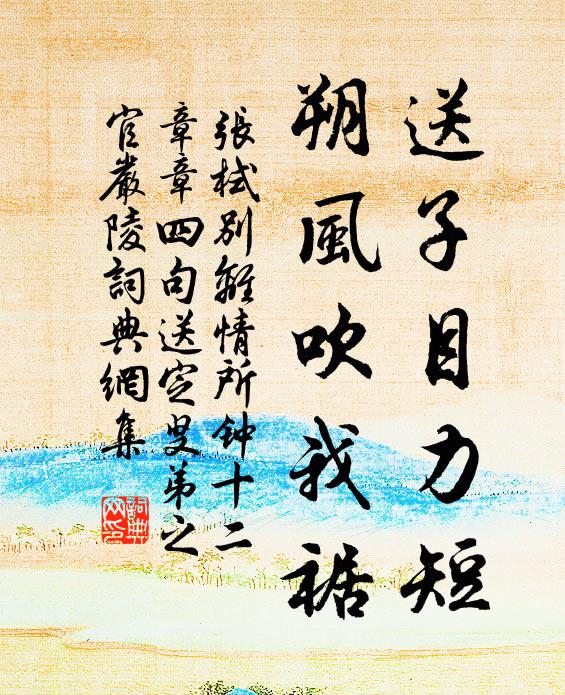 送子目力短
朔風吹我裾
張栻別離情所鍾十二
章章四句送定叟弟之
官嚴陵詞典網集